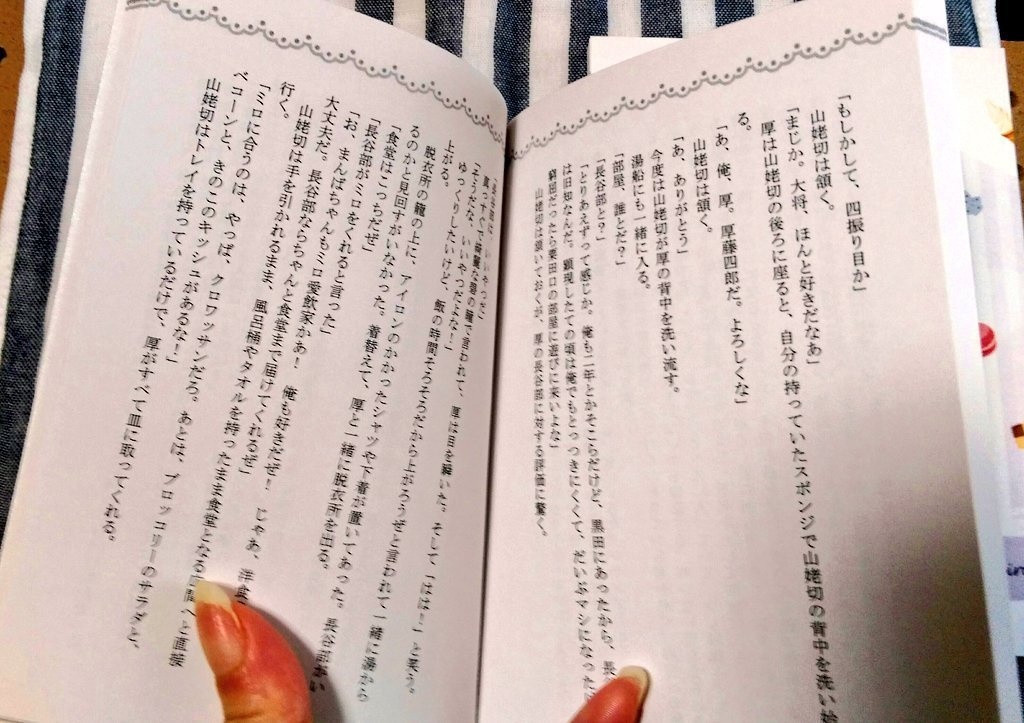 「もしかして、四振り目か」
山姥切は頷く。
「まじか。大将、ほんと好きだなあ」
厚は山姥切の後ろに座ると、自分の持っていたスポンジで山姥切の背中を洗い始
る。
「あ、俺、厚。厚藤四郎だ。よろしくな」
山姥切は頷く。
「あ、ありがとう」
今度は山姥切が厚の背中を洗い流す。
湯船にも一緒に入る。
「部屋、誰とだ?」
「長谷部と?」
「とりあえずって感じか。俺も二年とかそこらだけど、黒田にあったから、長
は旧知なんだ。顕現したての頃は俺でもとっつきにくくて、だいぶマシになった
窮屈だったら粟田口の部屋に遊びに来いよな」
山姥切は頷いておくが、厚の長谷部に対する評価に驚く。
「長谷部は、いいやつだ」
真っすぐで綺麗な碧の瞳で言われて、厚は目を瞬いた。そして「はは!」と笑う。
「そうだな、いいやつだよな!」
ゆっくりしたいけど、飯の時間そろそろだから上がろうぜと言われて一緒に湯から
上がる。
脱衣所の籠の上に、アイロンのかかったシャツや下着が置いてあった。長谷部がい
るのかと見回すがいなかった。着替えて、厚と一緒に脱衣所を出る。
「食堂はこっちだぜ」
「長谷部がミロをくれると言った」
「お、まんばちゃんもミロ愛飲家かあ! 俺も好きだぜ! じゃあ、洋食
大丈夫だ。長谷部ならちゃんと食堂まで届けてくれるぜ」
山姥切は手を引かれるまま、風呂桶やタオルを持ったまま食堂となる
へと直接
行く。
「ミロに合うのは、やっぱ、クロワッサンだろ。あとは、ブロッコリーのサラダと、
ベコーンと、きのこのキッシュがあるな!」
山姥切はトレイを持っているだけで、厚がすべて皿に取ってくれる。